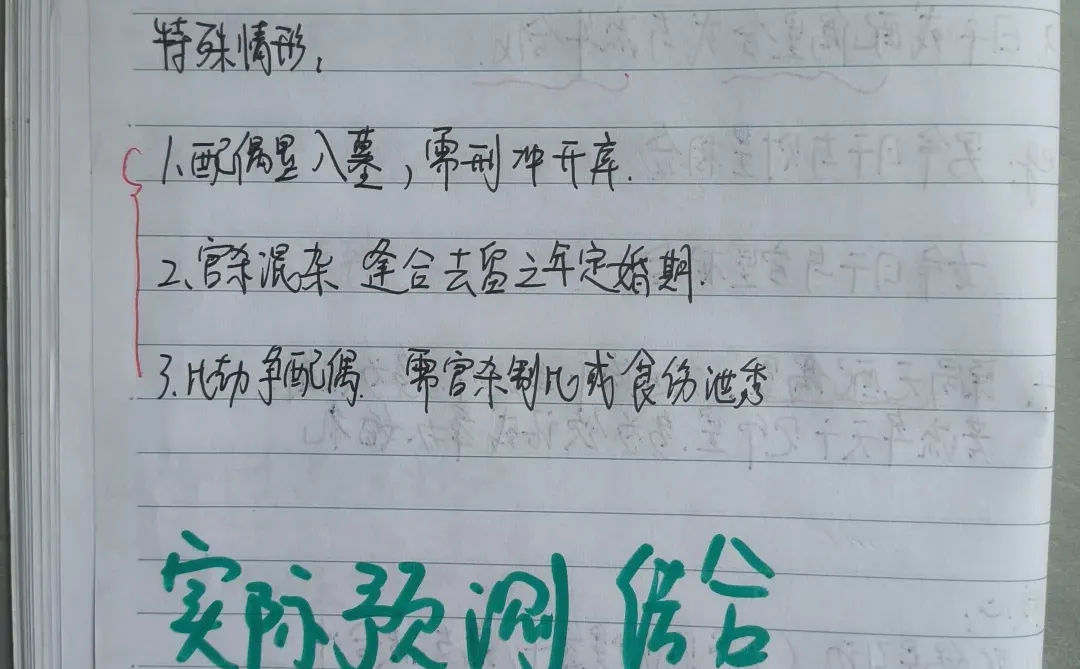 特殊情形,
1、配偶星入墓,需刑冲开库.
2、官杀混杂 逢合去留之年定婚期.
3、比劫争配偶. 需官杀制比或食伤泄秀
实际预测 结合